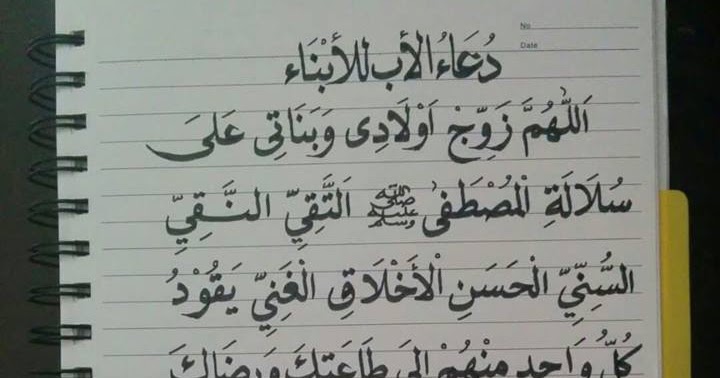 No
Date
دُعَاءُ الأب للأبْنَاء
اَللّٰهُمَّ زَوِّجْ اَوْلَادِى وَبَنَاتِى عَلىَ
سُلَالَةِ الْمُصْطَفىٰ ﷺ اَلتَّقِيِّ النَّقِيِّ
السُنِّيِّ الْحَسَنِ الْأَخْلَاقِ الْغَنِيِّ يَقُوْدُ
كُلُّ وَاحِدٍ مِنْهُمْ اِلَى طَاعَتِكَ وَرِضَاكَ